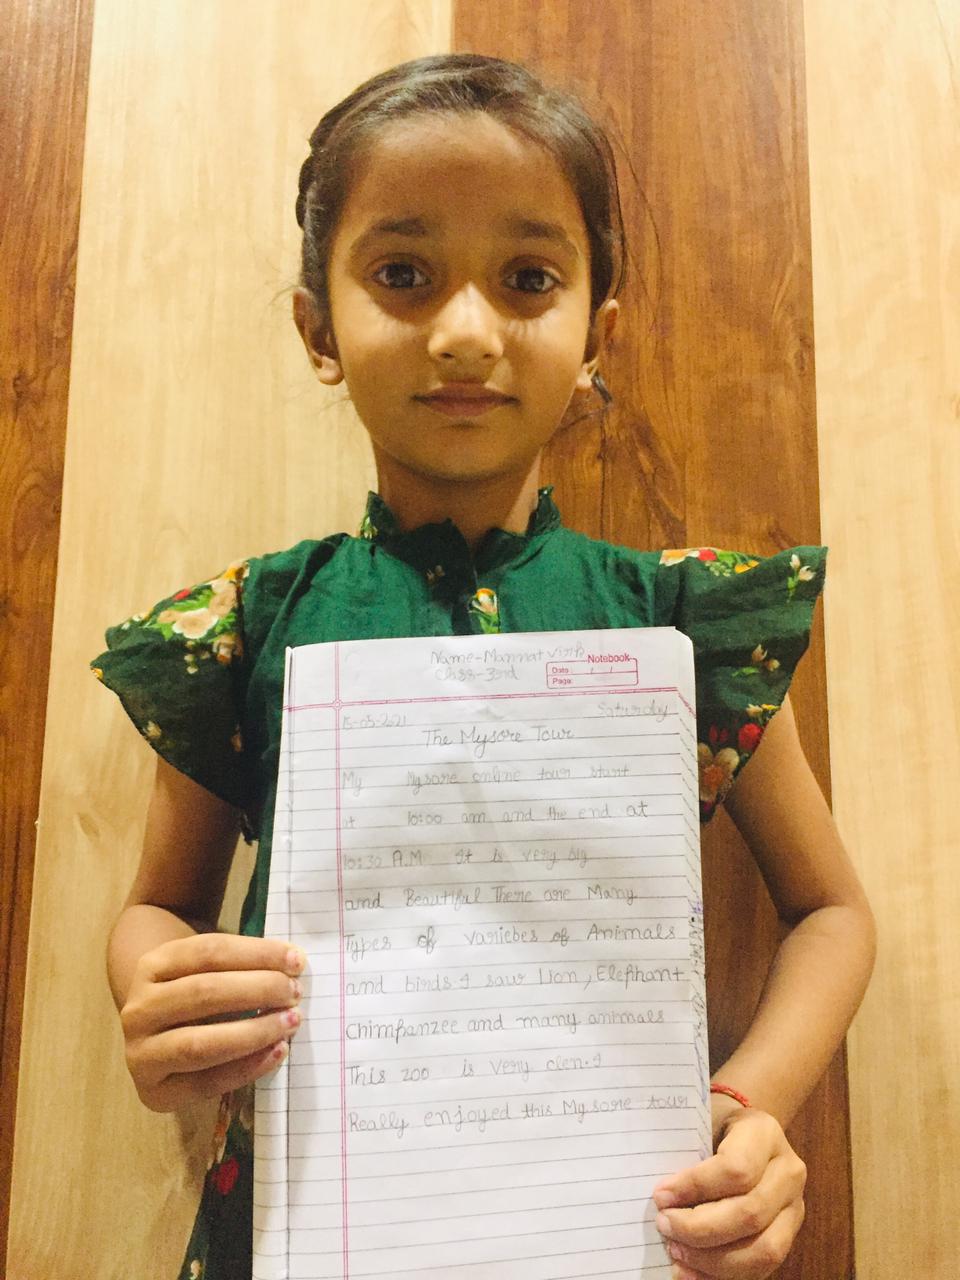 Name-Mannat Virk
Class-3rd
Notebook
Date: / /
Page:
15-05-2021 Saturday
The Mysore Tour
My Mysore online tour start
at 10:00 am and the end at
10:30 A.M It is very big
and Beautiful There are Many
Types of variebes of Animals
and birds. I saw Lion, Elephant
Chimpanzee and many animals
This zoo is very clen. I
Really enjoyed this Mysore tour